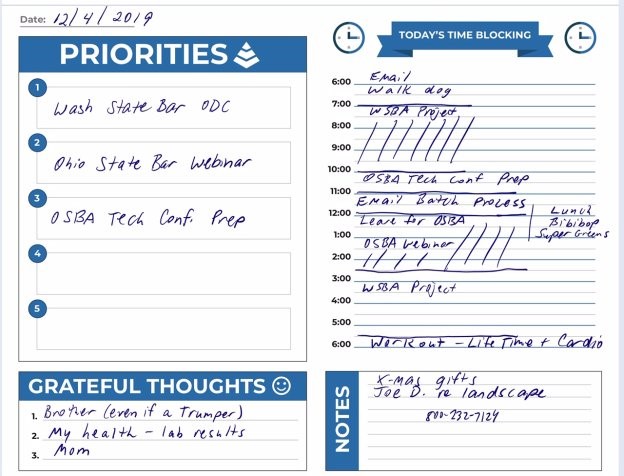 Date: 12/4/2019
PRIORITIES
1 Wash State Bar ODC
2 Ohio State Bar Webinar
3 OSBA Tech Conf. Prep
4
5
GRATEFUL THOUGHTS
1. Brother (even if a Trumper)
2. My health - lab results
3. Mom
TODAY'S TIME BLOCKING
6:00 Email
Walk dog
7:00
WSBA Project
8:00
9:00
10:00
OSBA Tech Conf Prep
11:00
Email Batch Process
12:00
Leave for OSBA
Lunch
Bibibop
Super Greens
1:00
OSBA webinar
2:00
3:00
WSBA Project
4:00
5:00
6:00 Workout - Life Time + Cardio
NOTES
X-mas gifts
Joe D. re landscape
800-232-7124